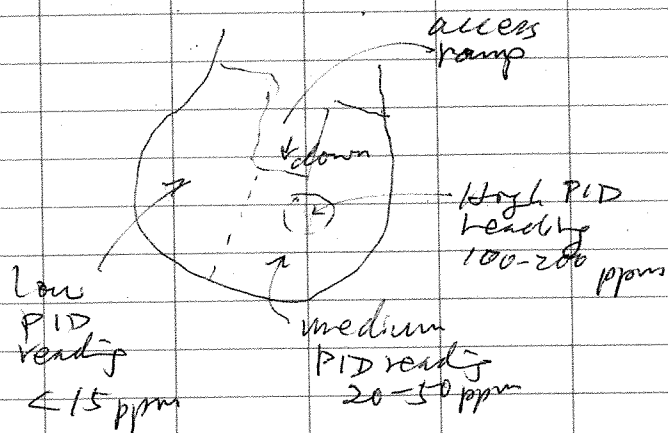 access
ramp
down
High PID
reading
100-200 ppm
low
PID
reading
<15 ppm
medium
PID reading
20-50 ppm